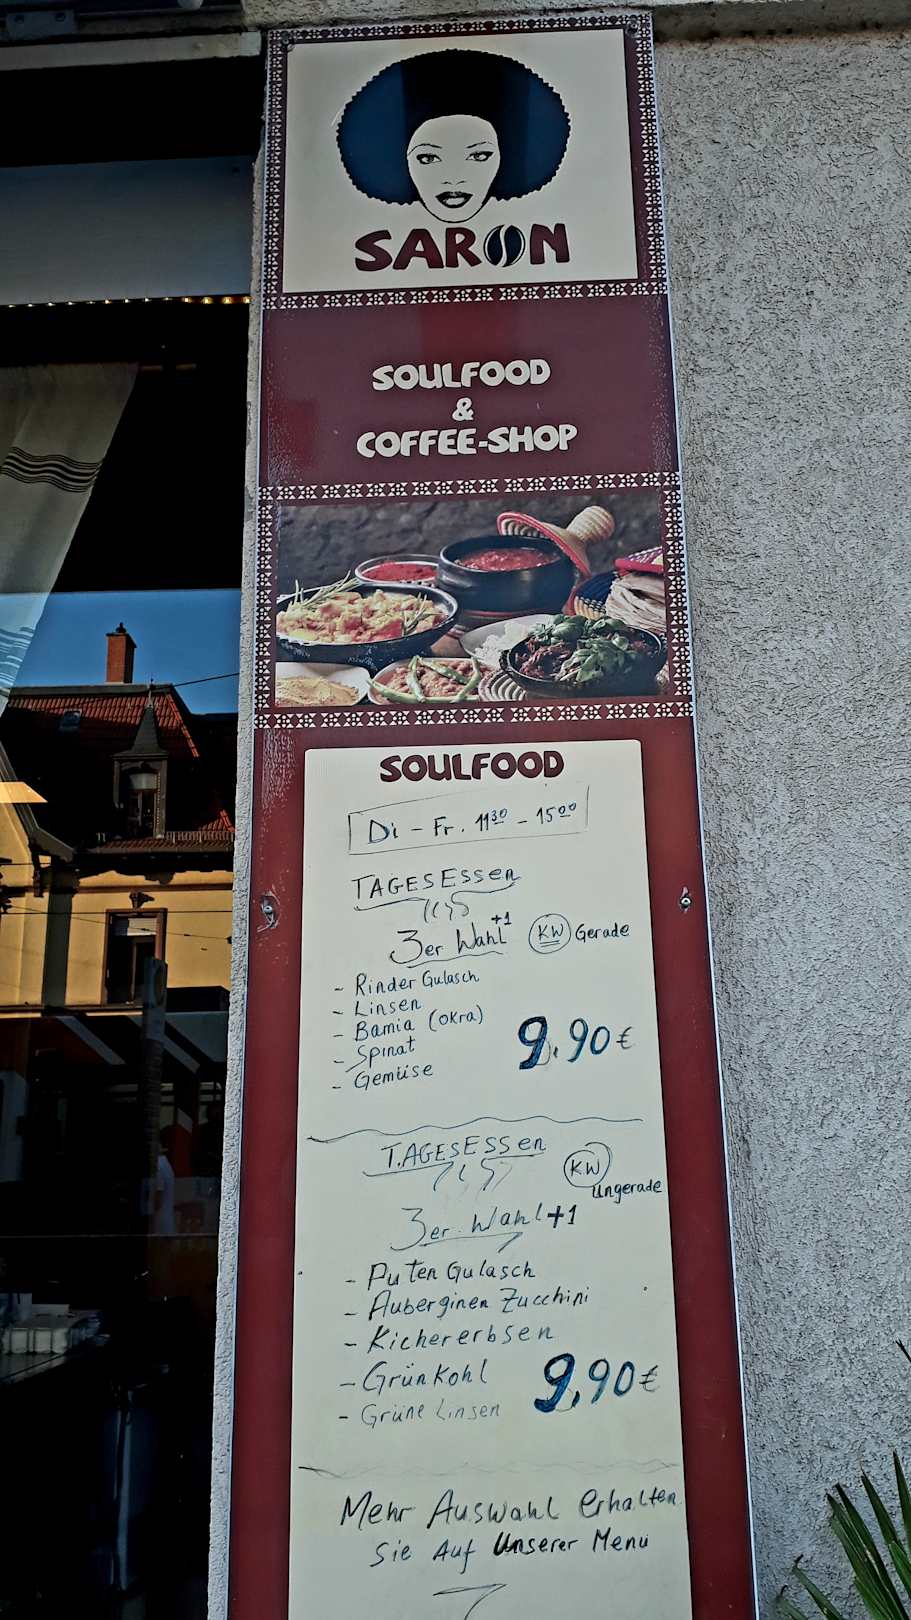 SARON
SOULFOOD
&
COFFEE-SHOP
SOULFOOD
Di - Fr. 11³⁰ - 15⁰⁰
TAGESESSEN
3er Wahl +1 KW Gerade
- Rinder Gulasch
- Linsen
- Bamia (OKra)
- Spinat
- Gemüse
9.90 €
TAGESESSEN
KW
Ungerade
3er Wahl +1
- Puten Gulasch
- Auberginen Zucchini
- Kichererbsen
- Grünkohl
- Grüne Linsen
9.90 €
Mehr Auswahl Erhalten
Sie Auf Unserer Menü